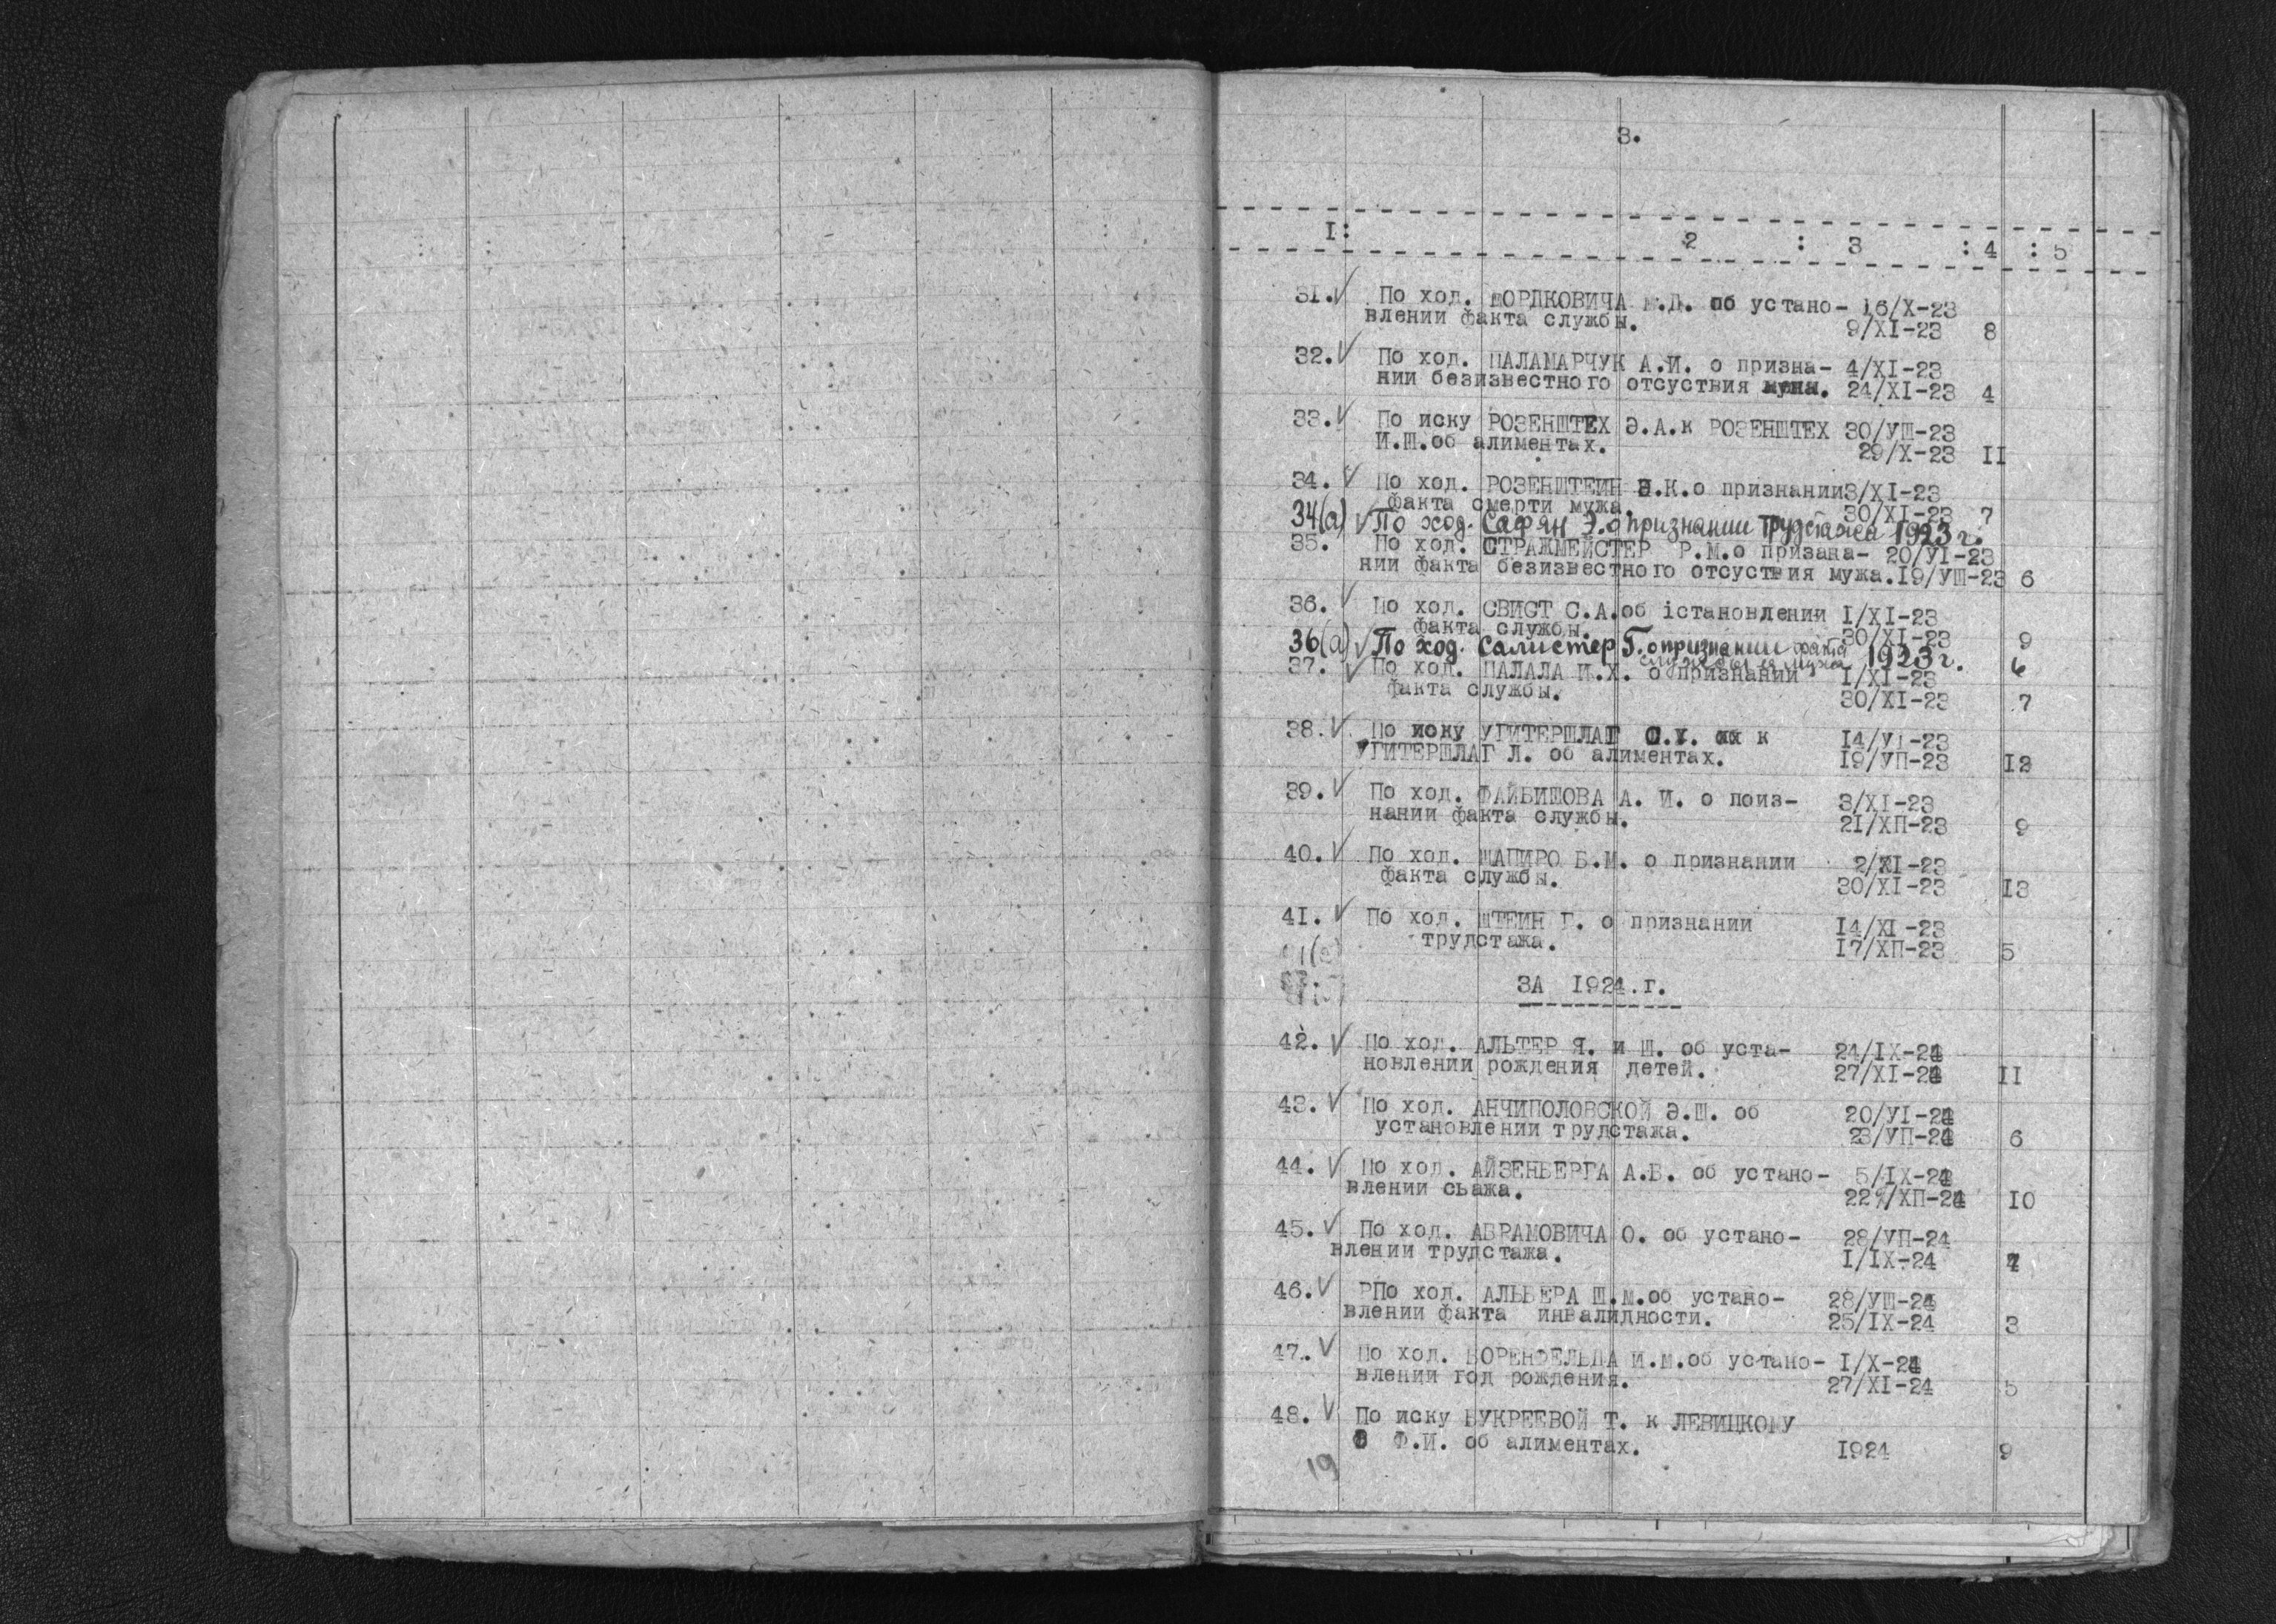 3.
I: 2 : 3 : 4 : 5
31. По ход. МОРДКОВИЧА М.Д. об устано- 16/X-23
влении факта службы. 9/XI-23 8
32. По ход. ПАЛАМАРЧУК А.И. о призна- 4/XI-23
нии безизвестного отсуствия мужа. 24/XI-23 4
33. По иску РОЗЕНШТЕХ Э.А.к РОЗЕНШТЕХ 30/УШ-23
И.Ш.об алиментах. 29/X-23 II
34. По ход. РОЗЕНШТЕИН Э.К.о признании3/XI-23
факта смерти мужа. 30/XI-23 7
34(а) По ход. Сафян Э. о признании трудстажа 1923 г.
35. По ход. СТРАЖМЕЙСТЕР Р.М.о призана- 20/УI-23
нии факта безизвестного отсуствия мужа.19/УШ-23 6
36. По ход. СВИСТ С.А.об iстановлении I/XI-23
факта службы. 30/XI-23 9
36(а) По ход. Салистер Г. о признании факта
службы мужа 1923 г. 6
37. По ход. ПАЛАЛА И.Х. о признании I/XI-23
факта службы. 30/XI-23 7
38. По иску УГИТЕРШЛАГ С.У. к 14/УI-23
УГИТЕРШЛАГ Л. об алиментах. 19/УП-23 12
39. По ход. ФАЙБИШОВА А. И. о поиз- 3/XI-23
нании факта службы. 21/ХП-23 9
40. По ход. ШАПИРО Б.М. о признании 2/XI-23
факта службы. 30/XI-23 13
41. По ход. ШТЕИН Г. о признании 14/XI-23
трудстажа. 17/ХП-23 5
ЗА 1924.г.
42. По ход. АЛЬТЕР Я. и Ш. об уста- 24/IX-24
новлении рождения детей. 27/XI-24 II
43. По ход. АНЧИПОЛОВСКОЙ Э.Ш. об 20/УI-24
установлении трудстажа. 23/УП-24 6
44. По ход. АЙЗЕНБЕРГА А.В. об устано- 5/IX-24
влении сьажа. 22/ХП-24 10
45. По ход. АБРАМОВИЧА О. об устано- 28/УП-24
влении трудстажа. I/IX-24
46. РПо ход. АЛЬБЕРА Ш.М.об устано- 28/УШ-24
влении факта инвалидности. 25/IX-24 3
47. По ход. БОРЕНФЕЛЬДА И.М.об устано- I/X-24
влении год рождения. 27/XI-24 5
48. По иску БУКРЕЕВОЙ Т. к ЛЕВИЦКОМУ
Ф.И. об алиментах. 1924 9
19